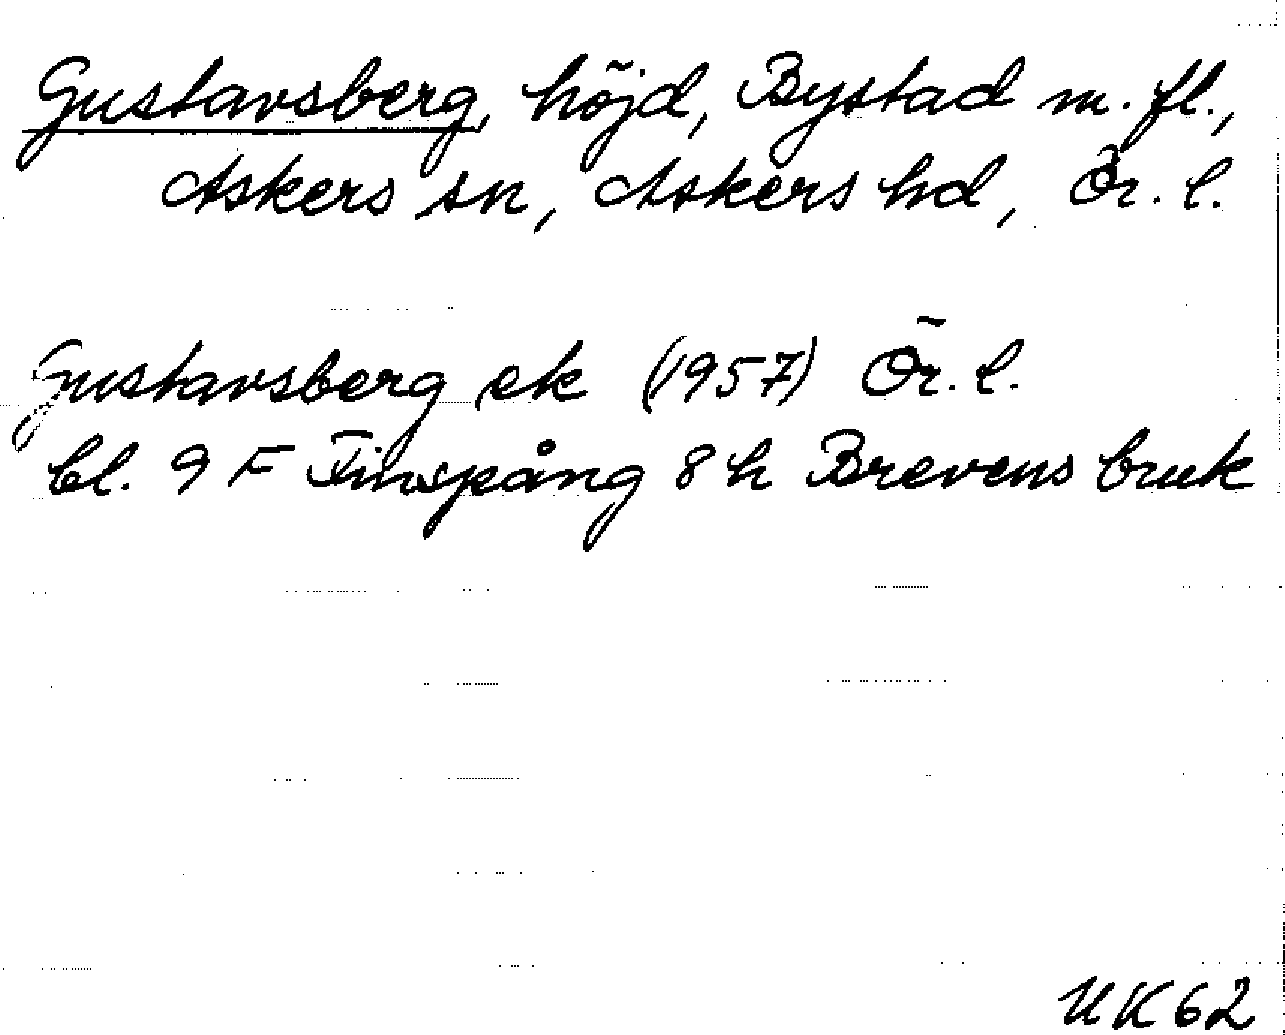 Gustavsberg, höjd, Bystad m. fl.,
Askers sn, Askers hd, Ör. l.
Gustavsberg ek (1957) Ör. l.
bl. 9 F Finspång 8 h Brevens bruk
UK 62